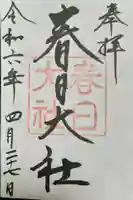 奉拝
春日大社
令和六年四月二十七日
春日
大社